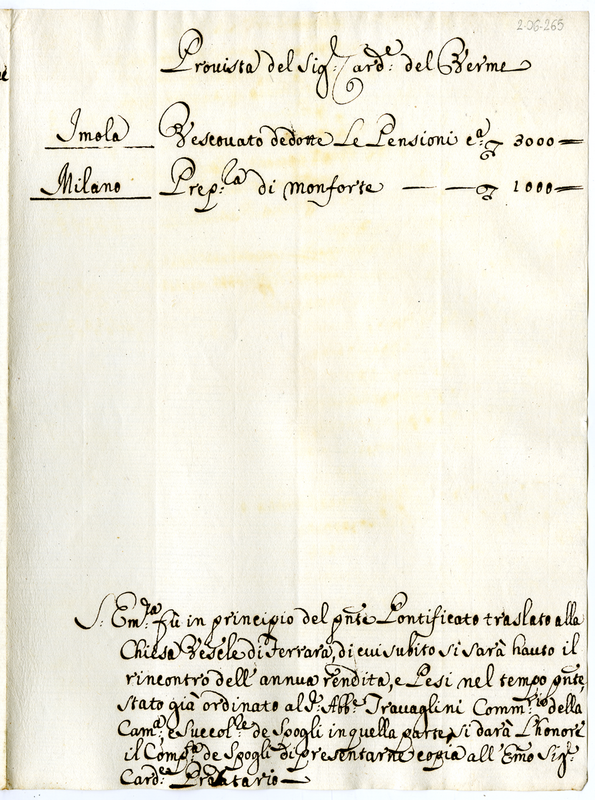 2-06-265
Provista del Sig.r Card.e del Verme
Imola Vescovato dedotte Le Pensioni 3000
Milano Prep.ra di Monforte 1000
S. Em.za fù in principio del pnte Pontificato traslato alla
Chiesa Vesc.le di Ferrara, di cui subito si sarà hauto il
rincontro dell'annua rendita, e Pesi nel tempo pnte,
stato già ordinato al d.o Abb.e Travaglini Comm.rio della
Cam.a, e Succol.re de Spogli in quella parte, si darà L'honore
il Comp.a de Spogli di presentarne copia all'Emo Sig.r
Card.e Prodatario